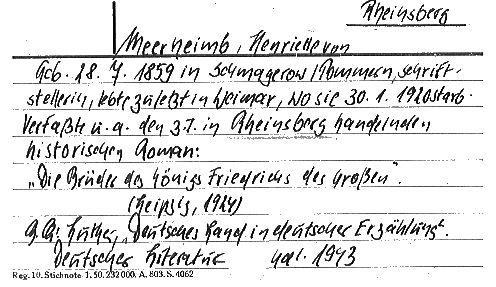 Rheinsberg
Meerheimb, Henriette von
Geb. 28. 7. 1859 in Schmagerow/Pommern, Schrift-
stellerin, lebte zuletzt in Weimar, wo sie 30. 1. 1920 starb.
Verfaßte u. a. den z. T. in Rheinsberg handelnden
historischen Roman:
"Die Brüder des Königs Friedrichs des Großen".
(Leipzig, 1924)
Luther, "Deutsches Land in deutscher Erzählung".
Deutscher Literatur 1943
Reg. 10. Stichnote 1. 50. 232000. A. 803. S. 4062